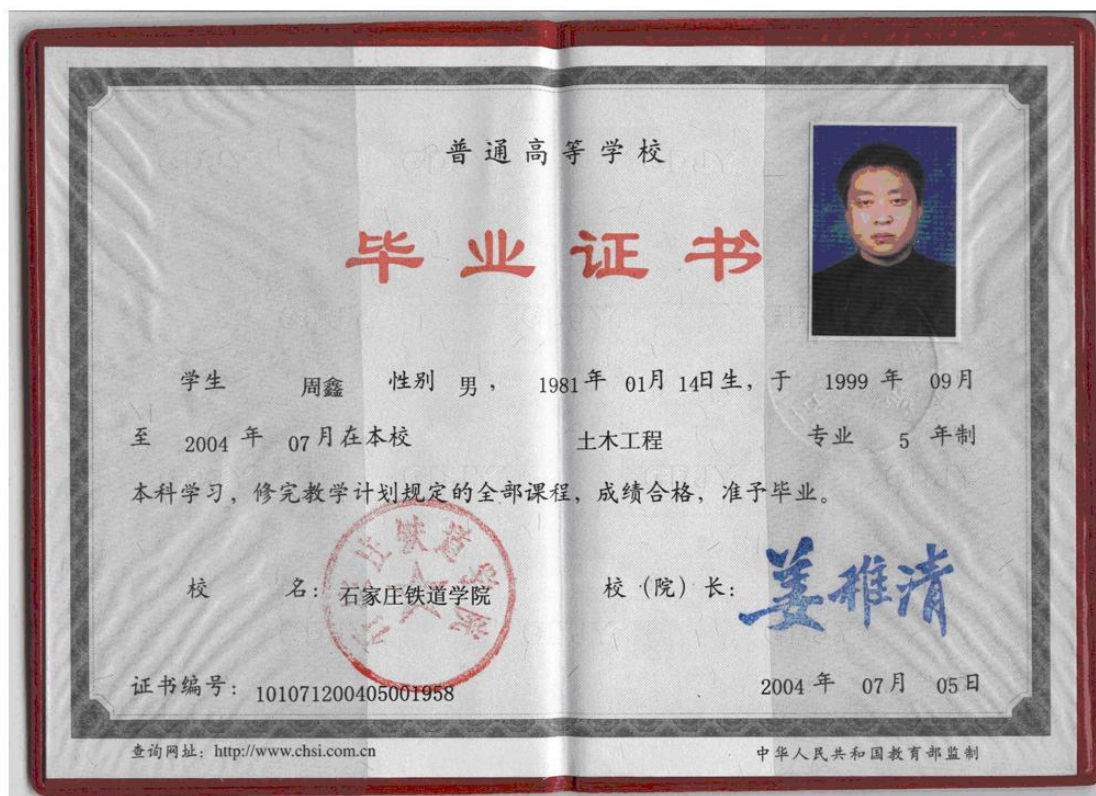 普通高等学校
毕业证书
学生 周鑫 性别 男， 1981年 01月 14日生，于 1999 年 09月
至 2004 年 07月在本校 土木工程 专业 5 年制
本科学习，修完教学计划规定的全部课程，成绩合格，准予毕业。
校 名：石家庄铁道学院 校（院）长：姜稚清
石家庄铁道学院
证书编号：101071200405001958 2004 年 07月 05日
查询网址：http://www.chsi.com.cn 中华人民共和国教育部监制